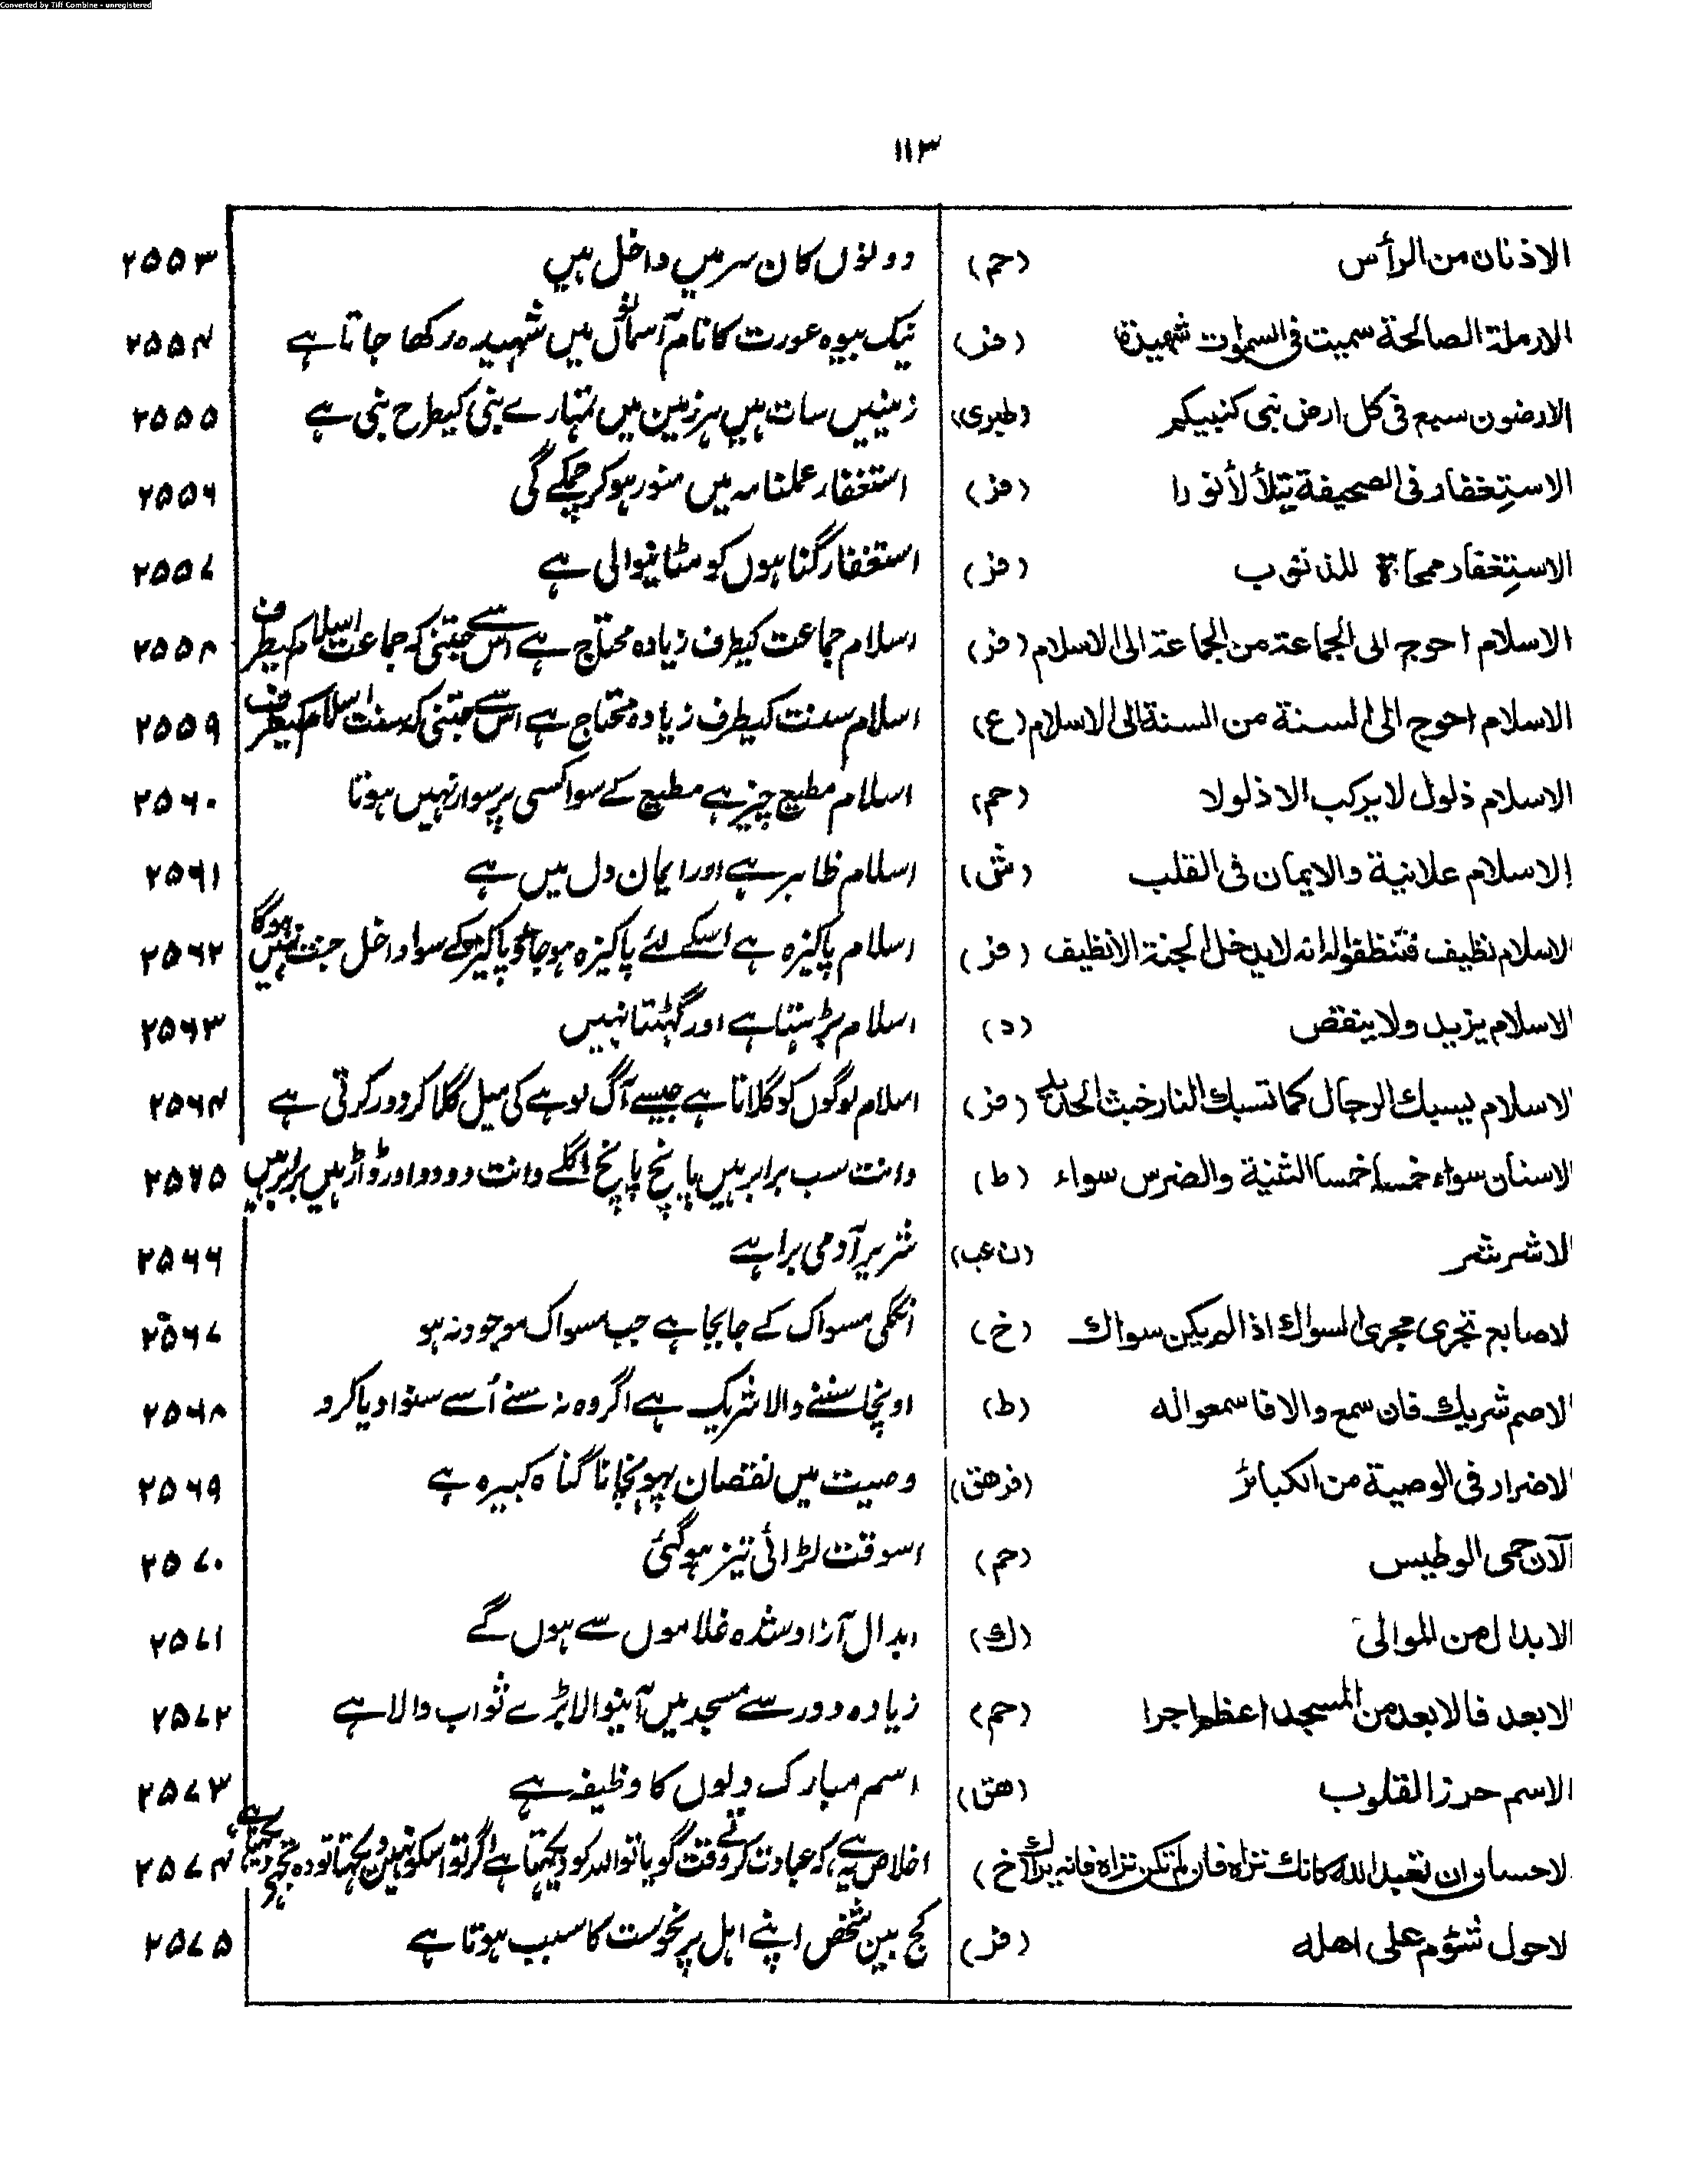 Converted by Tiff Combine - unregistered
۱۱۳
الاذنان من الرأس (حم) دونوں کان سر میں داخل ہیں ۲۵۵۳
الارملة الصالحة سميت فى السموات شهيدة (فر) نیک بیوہ عورت کا نام آسمانوں میں شہیدہ رکھا جاتا ہے ۲۵۵۴
الارضون سبع فى كل ارض نبى كنبيكم (طبری) زمینیں سات ہیں ہر زمین میں تمہارے نبی کیطرح نبی ہے ۲۵۵۵
الاستغفار فى الصحيفة يتلألأ نورا (فر) استغفار عملنامہ میں منور ہو کر چمکے گی ۲۵۵۶
الاستغفار ممحاة للذنوب (فر) استغفار گناہوں کو مٹانیوالی ہے ۲۵۵۷
الاسلام احوج الى الجماعة من الجماعة الى الاسلام (فر) اسلام جماعت کیطرف زیادہ محتاج ہے اس سے جتنی کہ جماعت اسلام کیطرف ۲۵۵۸
الاسلام احوج الى السنة من السنة الى الاسلام (ع) اسلام سنت کیطرف زیادہ محتاج ہے اس سے جتنی کہ سنت اسلام کیطرف ۲۵۵۹
الاسلام ذلول لا يركب الا ذلولا (حم) اسلام مطیع چیز ہے مطیع کے سوا کسی پر سوار نہیں ہوتا ۲۵۶۰
الاسلام علانية والايمان فى القلب (ش) اسلام ظاہر ہے اور ایمان دل میں ہے ۲۵۶۱
لاسلام نظيف فتنظفوا له انه لا يدخل الجنة الا نظيف (فر) اسلام پاکیزہ ہے اسکے لئے پاکیزہ ہو جاؤ پاکیزہ کے سوا داخل جنت نہیں ہوگا ۲۵۶۲
الاسلام يزيد ولا ينقص (د) اسلام بڑہتا ہے اور گھٹتا نہیں ۲۵۶۳
لاسلام يسبك الرجال كما تسبك النار خبث الحديد (فر) اسلام لوگوں کو گلاتا ہے جیسے آگ لوہے کی میل گلا کر دور کرتی ہے ۲۵۶۴
لاسنان سواء خمسا خمسا الثنية والضرس سواء (ط) دانت سب برابر ہیں پانچ پانچ اگلے دانت دو دو اور ڈاڑہیں برابر ہیں ۲۵۶۵
لاشر شر (ن عب) شریر آدمی برا ہے ۲۵۶۶
لاصابع تجرى مجرى السواك اذا لم يكن سواك (خ) انگلی مسواک کے جابجا ہے جب مسواک موجود نہ ہو ۲۵۶۷
لاصم شريك فان سمع والا فاسمعوا له (ط) اونچا سننے والا شریک ہے اگر وہ نہ سنے اُسے سنوا دیا کرو ۲۵۶۸
لاضرار فى الوصية من الكبائر (فر هق) وصیت میں نقصان پہونچانا گناہ کبیرہ ہے ۲۵۶۹
آلان حمى الوطيس (حم) اسوقت لڑائی تیز ہو گئی ۲۵۷۰
الابدال من الموالى (ك) ابدال آزاد شدہ غلاموں سے ہوں گے ۲۵۷۱
الابعد فالابعد من المسجد اعظم اجرا (حم) زیادہ دور سے مسجد میں آنیوالا بڑے ثواب والا ہے ۲۵۷۲
الاسم حرز القلوب (هق) اسم مبارک دلوں کا وظیفہ ہے ۲۵۷۳
لاحسان ان تعبد الله كانك تراه فان لم تكن تراه فانه يراك (خ) اخلاص یہ ہے کہ عبادت کرتے وقت گویا تو اللہ کو دیکہتا ہے اگر تو اسکو نہیں دیکہتا تو وہ تجہے دیکہتا ہے ۲۵۷۴
لاحول شؤم على اهله (فر) کج بین شخص اپنے اہل پر نحوست کا سبب ہوتا ہے ۲۵۷۵